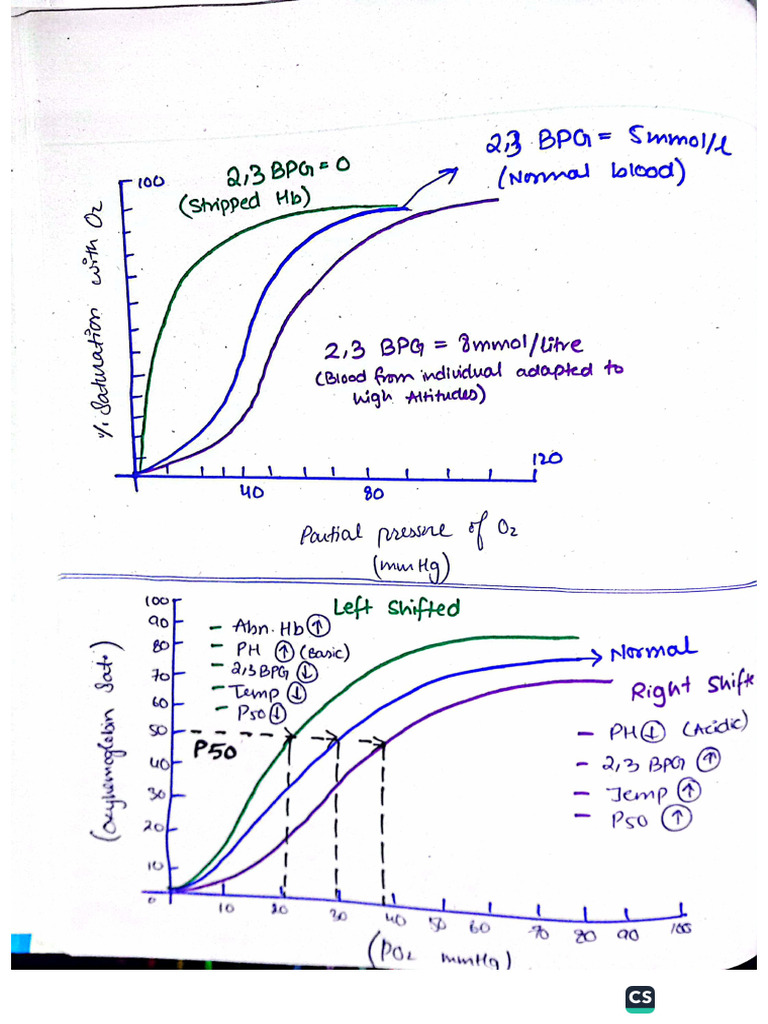 2,3 BPG = 5mmol/l
(Normal blood)
2,3 BPG = 0
(Stripped Hb)
100
% Saturation with O2
2,3 BPG = 8mmol/litre
(Blood from individual adapted to
high Altitudes)
120
40 80
Partial pressure of O2
(mmHg)
Left Shifted
100
90
80
70
60
50
40
30
20
10
0
(Oxyhemoglobin Sat.)
- Abn. Hb ↑
- PH ↑ (Basic)
- 2,3 BPG ↓
- Temp ↓
- P50 ↓
P50
Normal
Right Shifte
- PH ↓ (Acidic)
- 2,3 BPG ↑
- Temp ↑
- P50 ↑
10 20 30 40 50 60 70 80 90 100
(PO2 mmHg)
CS